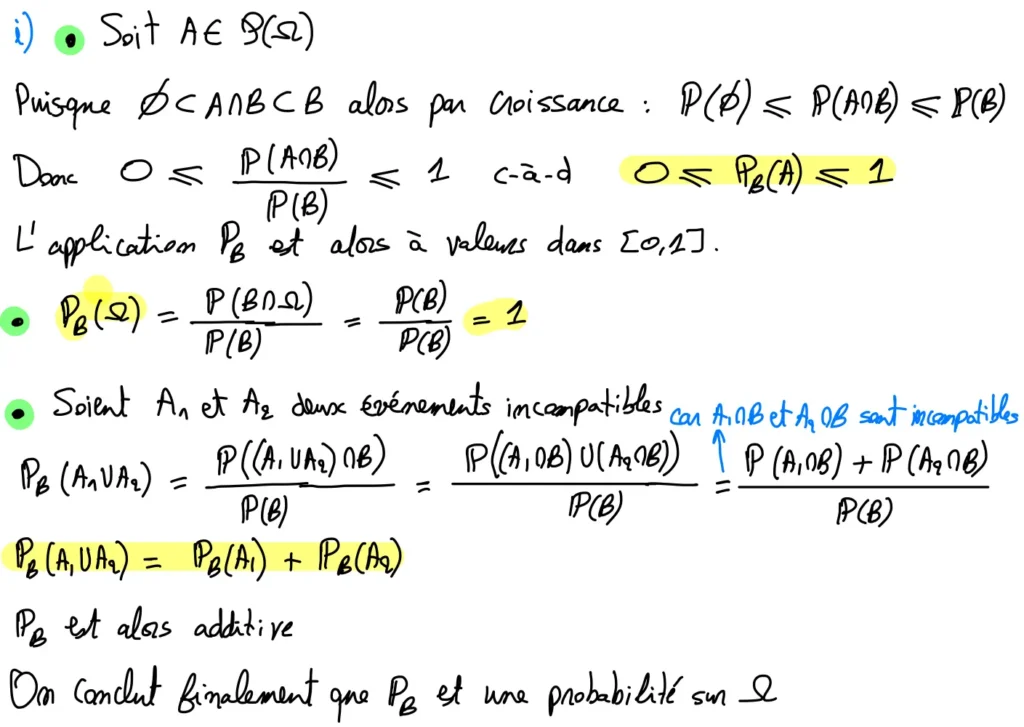 i) • Soit A ∈ 𝒫(Ω)
Puisque ∅ ⊂ A∩B ⊂ B alors par croissance : ℙ(∅) ⩽ ℙ(A∩B) ⩽ ℙ(B)
Donc 0 ⩽ ℙ(A∩B)/ℙ(B) ⩽ 1 c-à-d 0 ⩽ ℙ_B(A) ⩽ 1
L'application ℙ_B est alors à valeurs dans [0,1].
• ℙ_B(Ω) = ℙ(B∩Ω)/ℙ(B) = ℙ(B)/ℙ(B) = 1
• Soient A₁ et A₂ deux événements incompatibles car A₁∩B et A₂∩B sont incompatibles
ℙ_B(A₁∪A₂) = ℙ((A₁∪A₂)∩B)/ℙ(B) = ℙ((A₁∩B)∪(A₂∩B))/ℙ(B) ↑= (ℙ(A₁∩B) + ℙ(A₂∩B))/ℙ(B)
ℙ_B(A₁∪A₂) = ℙ_B(A₁) + ℙ_B(A₂)
ℙ_B est alors additive
On conclut finalement que ℙ_B est une probabilité sur Ω